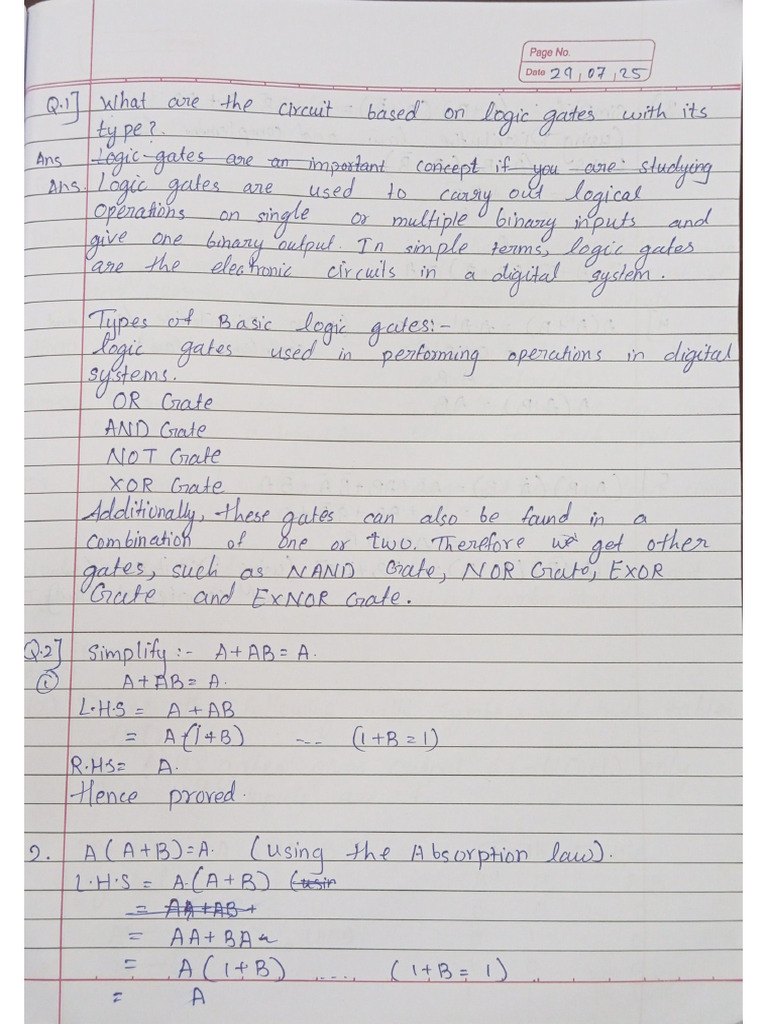 Page No.
Date 29, 07, 25
Q.1] What are the circuit based on logic gates with its
type?
Ans Logic gates are an important concept if you are studying
Ans. Logic gates are used to carry out logical
Operations on single or multiple binary inputs and
give one binary output. In simple terms, logic gates
are the electronic circuils in a digital system.
Types of Basic logic gates:-
logic gates used in performing operations in digital
systems.
OR Gate
AND Gate
NOT Gate
XOR Gate
Additionally, these gates can also be found in a
combination of one or two. Therefore we get other
gates, such as NAND Gate, NOR Gate, EXOR
Gate and EXNOR Gate.
Q.2] Simplify :- A + AB = A.
① A + AB = A.
L.H.S = A + AB
= A (1 + B) --- (1 + B = 1)
R.H.S = A.
Hence proved.
2. A (A + B) = A. (using the Absorption law).
L.H.S = A.(A + B) (usin
= AA + AB +
= AA + BA
= A (1 + B) .... (1 + B = 1)
= A